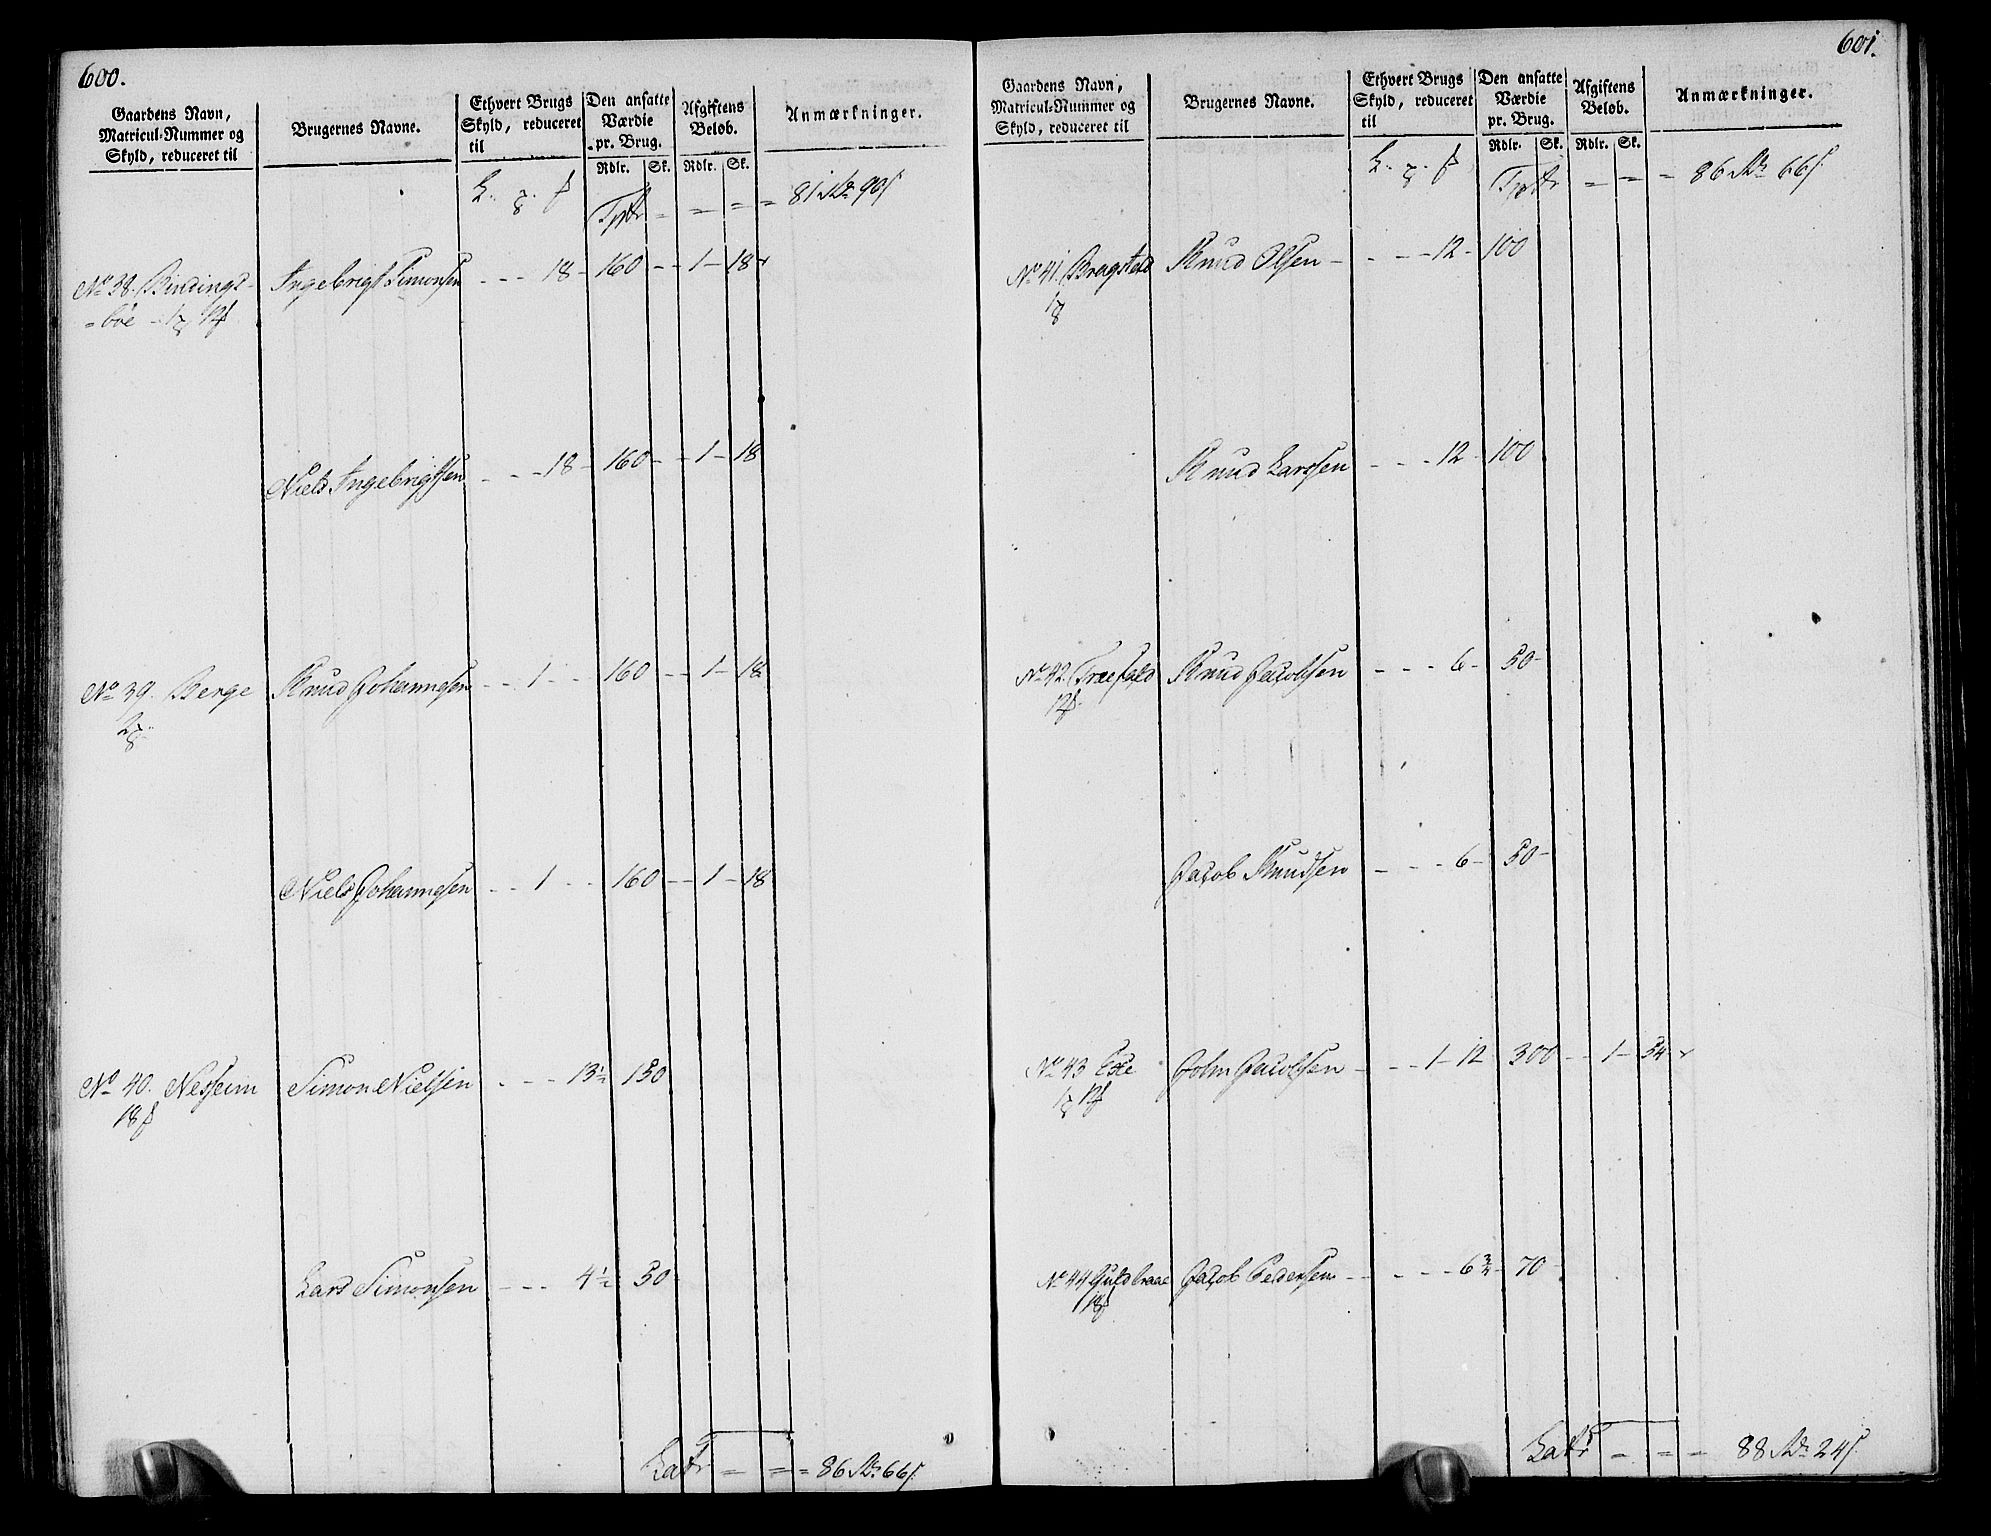 600.
Gaardens Navn, Matricul-Nummer og Skyld, reduceret til | Brugernes Navne. | Ethvert Brugs Skyld, reduceret til | Den ansatte Værdie pr. Brug. Rdlr. Sk. | Afgiftens Beløb. Rdlr. Sk. | Anmærkninger.
Tptr = = = = 81 Rdr 90 s
No 38. Bindings- Ingebrigt Simonsen - - 18 - 160 - - 1 - 18
=böe - 1 12
Niels Ingebrigtsen - - - 18 - 160 - - 1 - 18
No 39. Berge Knud Johannesen - - 1 - - 160 - - 1 - 18
2
Niels Johannesen - - 1 - - 160 - - 1 - 18
No 40. Nesheim Simon Nielsen - - - 13½ 150
18
Lars Simonsen - - - 4½ 50
Latr = = = 86 Rdr 66 s
601.
Gaardens Navn, Matricul-Nummer og Skyld, reduceret til | Brugernes Navne. | Ethvert Brugs Skyld, reduceret til | Den ansatte Værdie pr. Brug. Rdlr. Sk. | Afgiftens Beløb. Rdlr. Sk. | Anmærkninger.
Tptr = = = 86 Rdr 66 s
No 41. Bragstad Knud Olsen - - - - 12 - 100
1
Knud Larssen - - - 12 - 100
No 42. Træfald Knud Jacobsen - - - 6 - 50 -
12
Jacob Knudsen - - - 6 - 50 -
No 43 Exe John Jacobsen - - - 1 - 12 300 - - 1 - 54
1 12
No 44 Guldbraae Jacob Pedersen - - - - 6¾ - 70 -
18
Latr = = = 88 Rdr 24 s